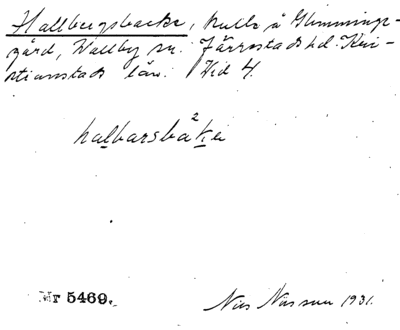 Hallbergsbacke, kulle å Glimminge-
gård, Wallby sn. Järrestads hd. Kri-
stianstads län. Vid 4.
halbarsbakẹ
Nr 5469.
Nils Nilsson 1931.